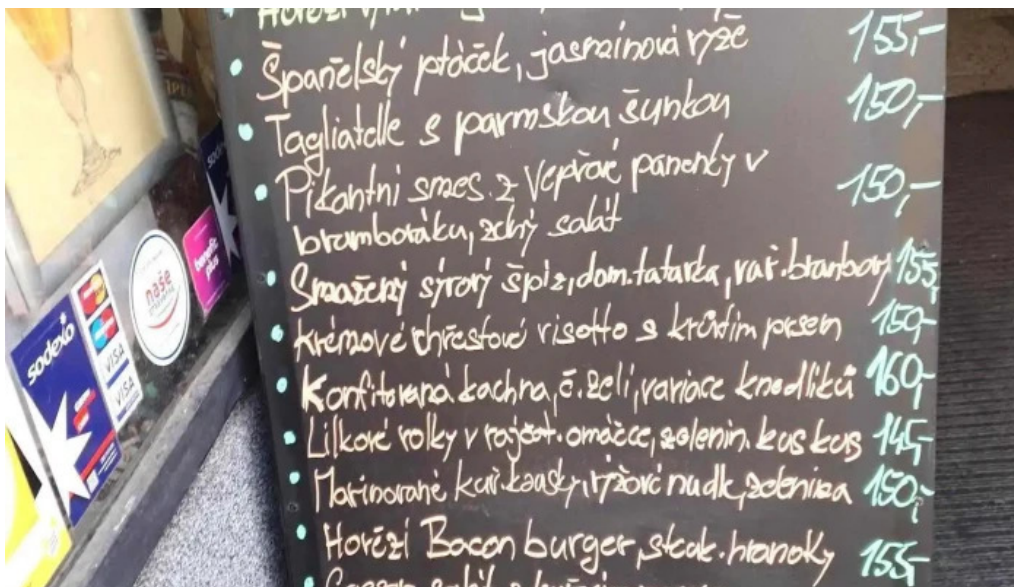 Hovězí
• Španělský ptáček, jasmínová rýže 155,-
• Tagliatelle s parmskou šunkou 150,-
• Pikantní směs z vepřové panenky v
bramboráku, zelný salát 150,-
• Smažený sýrový špíz, dom. tatarka, vař. brambory 155,
• Krémové chřestové risotto s krůtím prsem 150,-
• Konfitovaná kachna, č. zelí, variace knedlíků 160,-
• Lilkové rolky v rajčat. omáčce, zelenin. kus kus 145,-
• Marinované kuř. kousky, rýžové nudle, zelenina 150,-
• Hovězí Bacon burger, steak. hranolky 155,-
salát s
sodexo
VISA
VISA
naše
benefit
plus